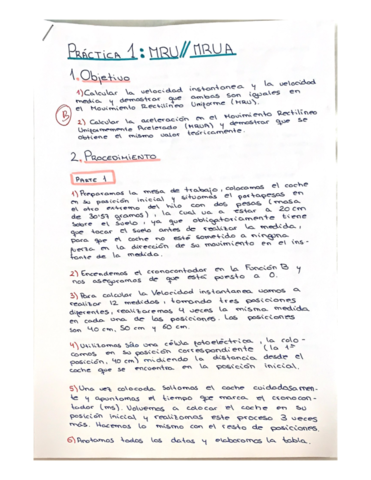 PRÁCTICA 1: MRU//MRUA
1. Objetivo
1) Calcular la velocidad instantanea y la velocidad
media y demostrar que ambas son iguales en
el Movimiento Rectilíneo Uniforme (MRU).
B
2) Calcular la aceleración en el Movimiento Rectilíneo
Uniformemente Acelerado (MRUA) y demostrar que se
obtiene el mismo valor teóricamente.
2. PROCEDIMIENTO
PARTE 1
1) Preparamos la mesa de trabajo, colocamos el coche
en su posición inicial y situamos el portapesas en
el otro extremo del hilo con dos pesas (masa
de 30'57 gramos), la cual va a estar a 20 cm
sobre el suelo, ya que obligatoriamente tiene
que tocar el suelo antes de realizar la medida,
para que el coche no esté sometido a ninguna
fuerza en la dirección de su movimiento en el ins-
tante de la medida.
2) Encendemos el cronocontador en la Función B y
nos aseguramos de que está puesto a 0.
3) Para calcular la Velocidad instantanea vamos a
realizar 12 medidas, tomando tres posiciones
diferentes, realizaremos 4 veces la misma medida
en cada una de las posiciones. Las posiciones
son 40 cm, 50 cm y 60 cm.
4) Utilizamos sólo una célula fotoeléctrica, la colo-
camos en su posición correspondiente (la 1ª
posición, 40 cm) midiendo la distancia desde el
coche que se encuentra en la posición inicial.
5) Una vez colocada. Soltamos el coche cuidadosamen-
te y apuntamos el tiempo que marca el cronocon-
tador (ms). Volvemos a colocar el coche en su
posición inicial y realizamos este proceso 3 veces
más. Hacemos lo mismo con el resto de posiciones.
6) Anotamos todos los datos y elaboramos la tabla.